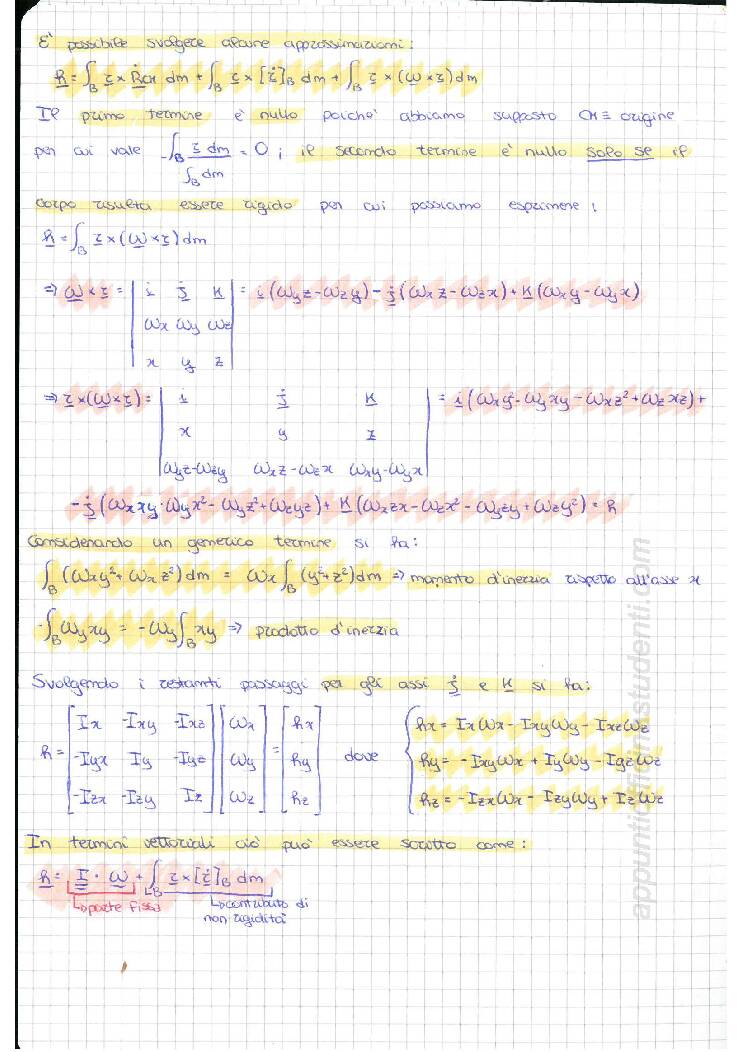 E' possibile svolgere alcune approssimazioni:
h = ∫_B r × Ṙ_CM dm + ∫_B r × [ṙ]_B dm + ∫_B r × (ω × r) dm
Il primo termine è nullo poiché abbiamo supposto CM ≡ origine
per cui vale ∫_B r dm / ∫_B dm = 0 ; il secondo termine è nullo solo se il
corpo risulta essere rigido per cui possiamo esprimere:
h = ∫_B r × (ω × r) dm
⇒ ω × r = | i j k | = i (ωy z - ωz y) - j (ωx z - ωz x) + k (ωx y - ωy x)
ωx ωy ωz
x y z
⇒ r × (ω × r) = | i j k | = i (ωx y² - ωy xy - ωx z² + ωz xz) +
x y z
ωy z - ωz y ωx z - ωz x ωx y - ωy x
- j (ωx xy · ωy x² - ωy z² + ωz yz) + k (ωx zx - ωz x² - ωy zy + ωz y²) = h
Considerando un generico termine si ha:
∫_B (ωx y² + ωx z²) dm = ωx ∫_B (y² + z²) dm ⇒ momento d'inerzia rispetto all'asse x
- ∫_B ωy xy = - ωy ∫_B xy ⇒ prodotto d'inerzia
Svolgendo i restanti passaggi per gli assi j e k si ha:
Ix -Ixy -Ixz ωx hx hx = Ix ωx - Ixy ωy - Ixz ωz
h = -Iyx Iy -Iyz ωy = hy dove hy = - Ixy ωx + Iy ωy - Iyz ωz
-Izx -Izy Iz ωz hz hz = -Izx ωx - Izy ωy + Iz ωz
In termini vettoriali ciò può essere scritto come:
h = I · ω + ∫_B r × [ṙ]_B dm
↳ parte fissa ↳ contributo di
non rigidità